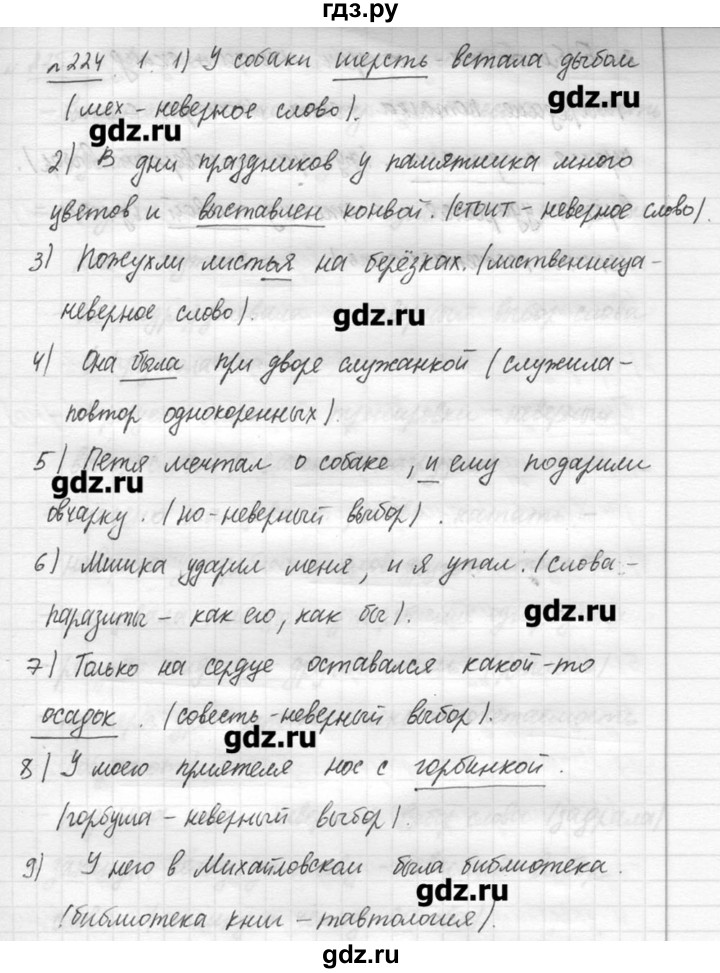 гдз.ру
№224 1. 1) У собаки шерсть встала дыбом
(мех - неверное слово).
gdz.ru
gdz.ru
2) В дни праздников у памятника много
цветов и выставлен конвой. (стоит - неверное слово).
3) Пожухли листья на берёзках. (лиственница -
неверное слово).
gdz.ru
4) Она была при дворе служанкой (служила -
повтор однокоренных).
5) Петя мечтал о собаке, и ему подарили
gdz.ru
овчарку. (но - неверный выбор).
6) Мишка ударил меня, и я упал. (слова -
паразиты - как его, как бы).
gdz.ru
7) Только на сердце оставался какой-то
осадок. (совесть - неверный выбор).
gdz.ru
8) У моего приятеля нос с горбинкой.
(горбуша - неверный выбор).
9) У него в Михайловском была библиотека.
gdz.ru
(библиотека книг - тавтология).
gdz.ru